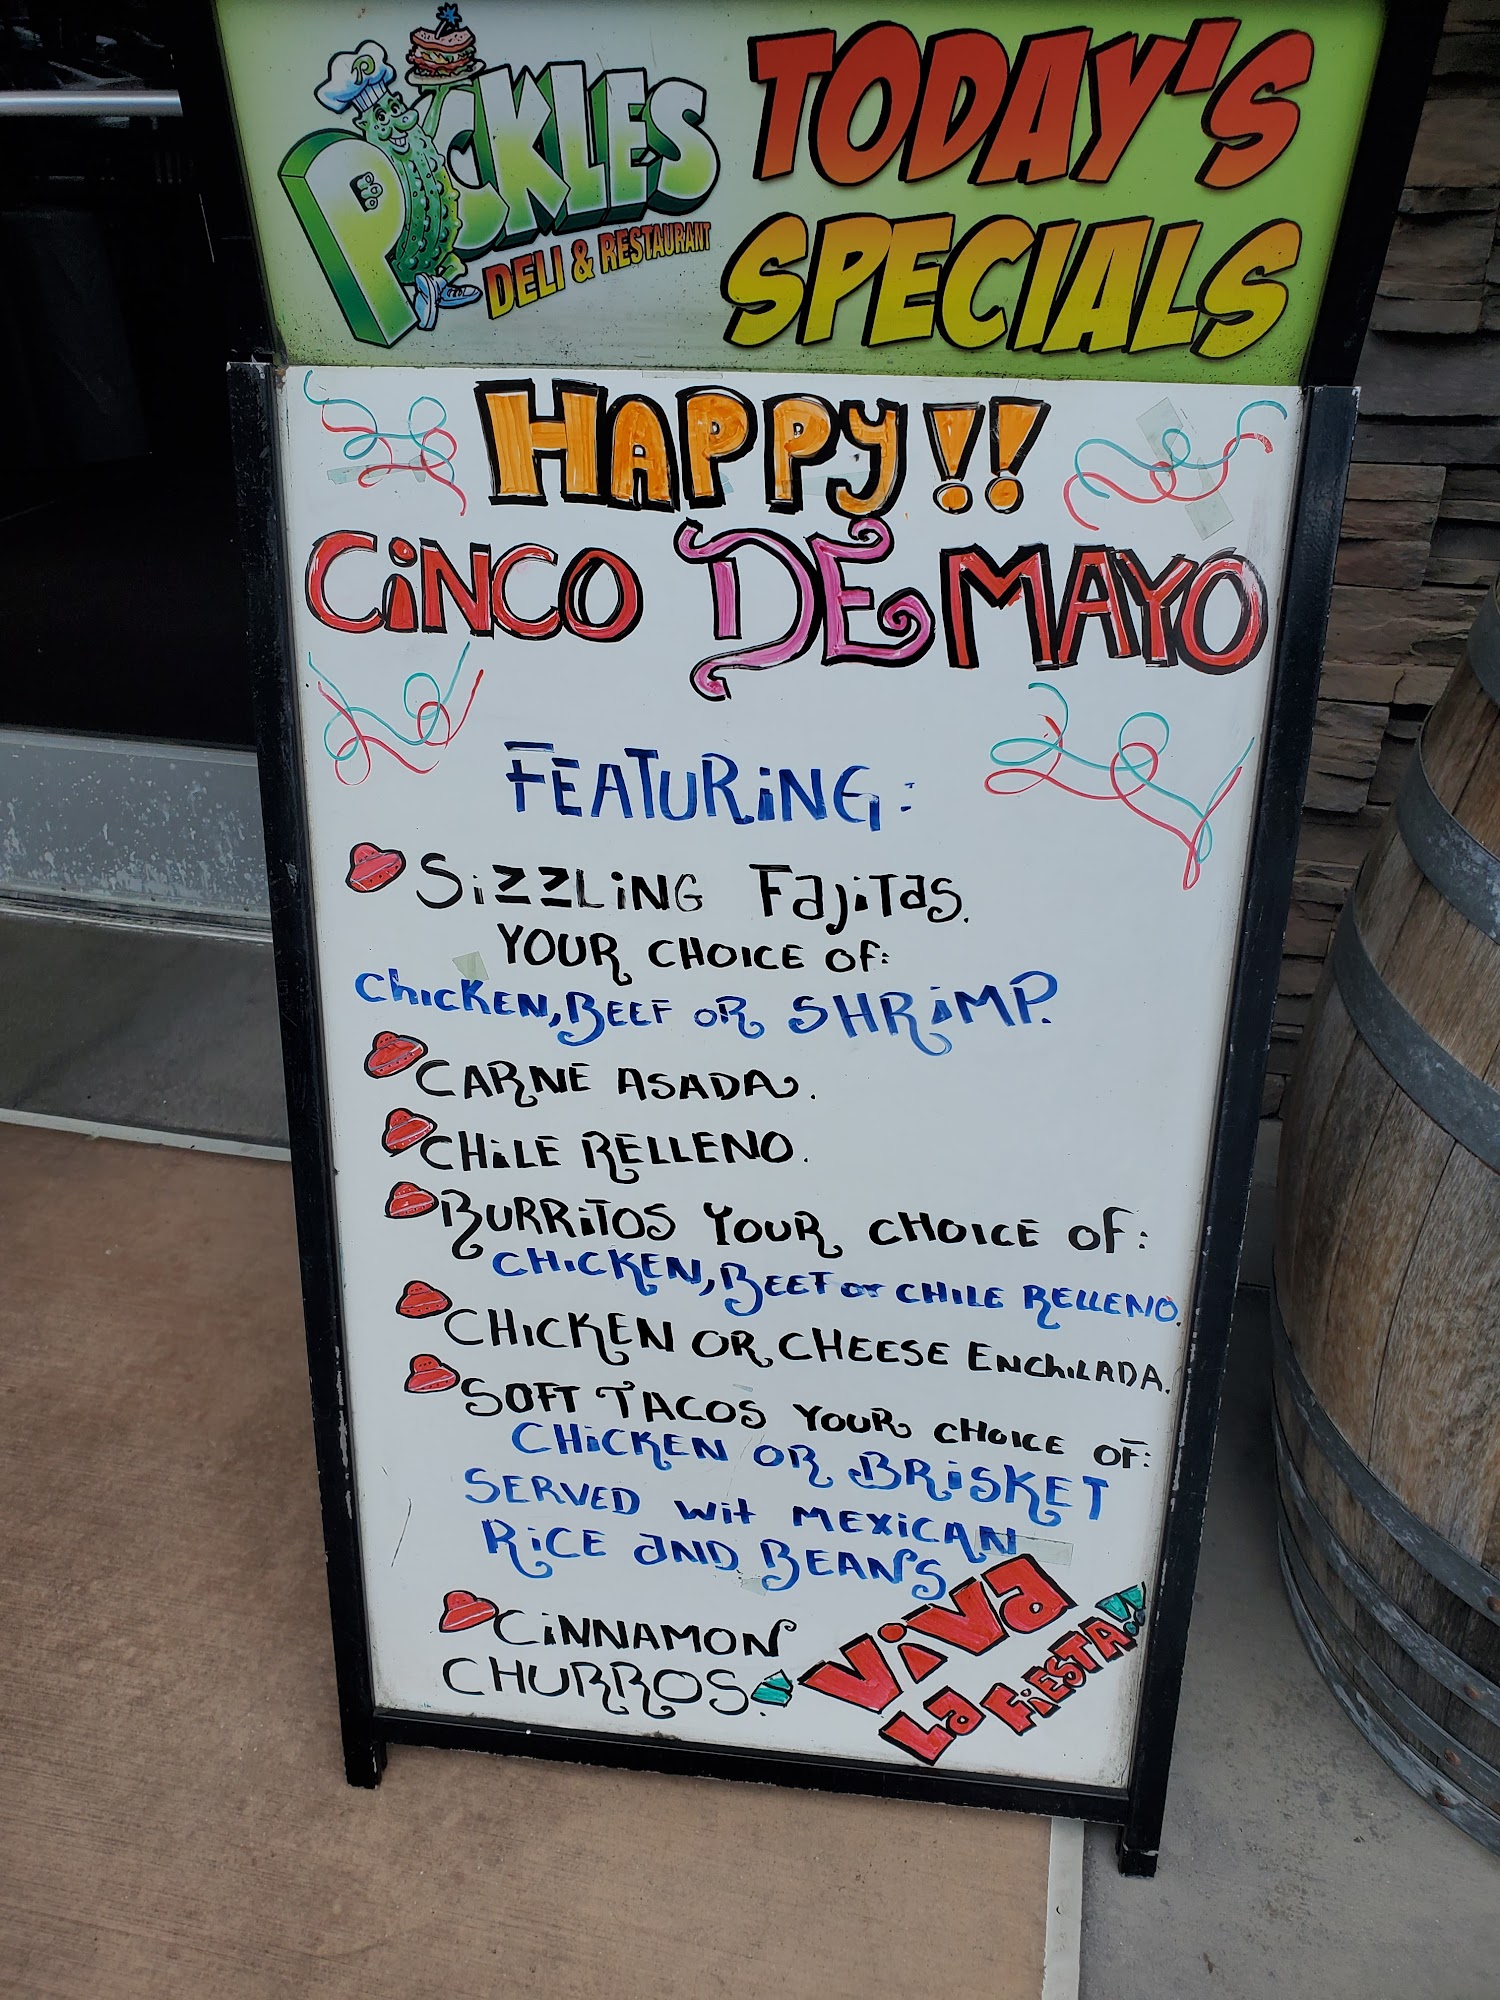 PICKLES
DELI & RESTAURANT
TODAY'S
SPECIALS
HAPPY!!
CINCO DE MAYO
FEATURING:
SIZZLING FAJITAS.
YOUR CHOICE OF:
CHICKEN, BEEF OR SHRIMP.
CARNE ASADA.
CHILE RELLENO.
BURRITOS YOUR CHOICE OF:
CHICKEN, BEEF or CHILE RELLENO.
CHICKEN OR CHEESE ENCHILADA.
SOFT TACOS YOUR CHOICE OF:
CHICKEN OR BRISKET
SERVED wit MEXICAN
RICE AND BEANS
CINNAMON
CHURROS.
VIVA
LA FIESTA!!